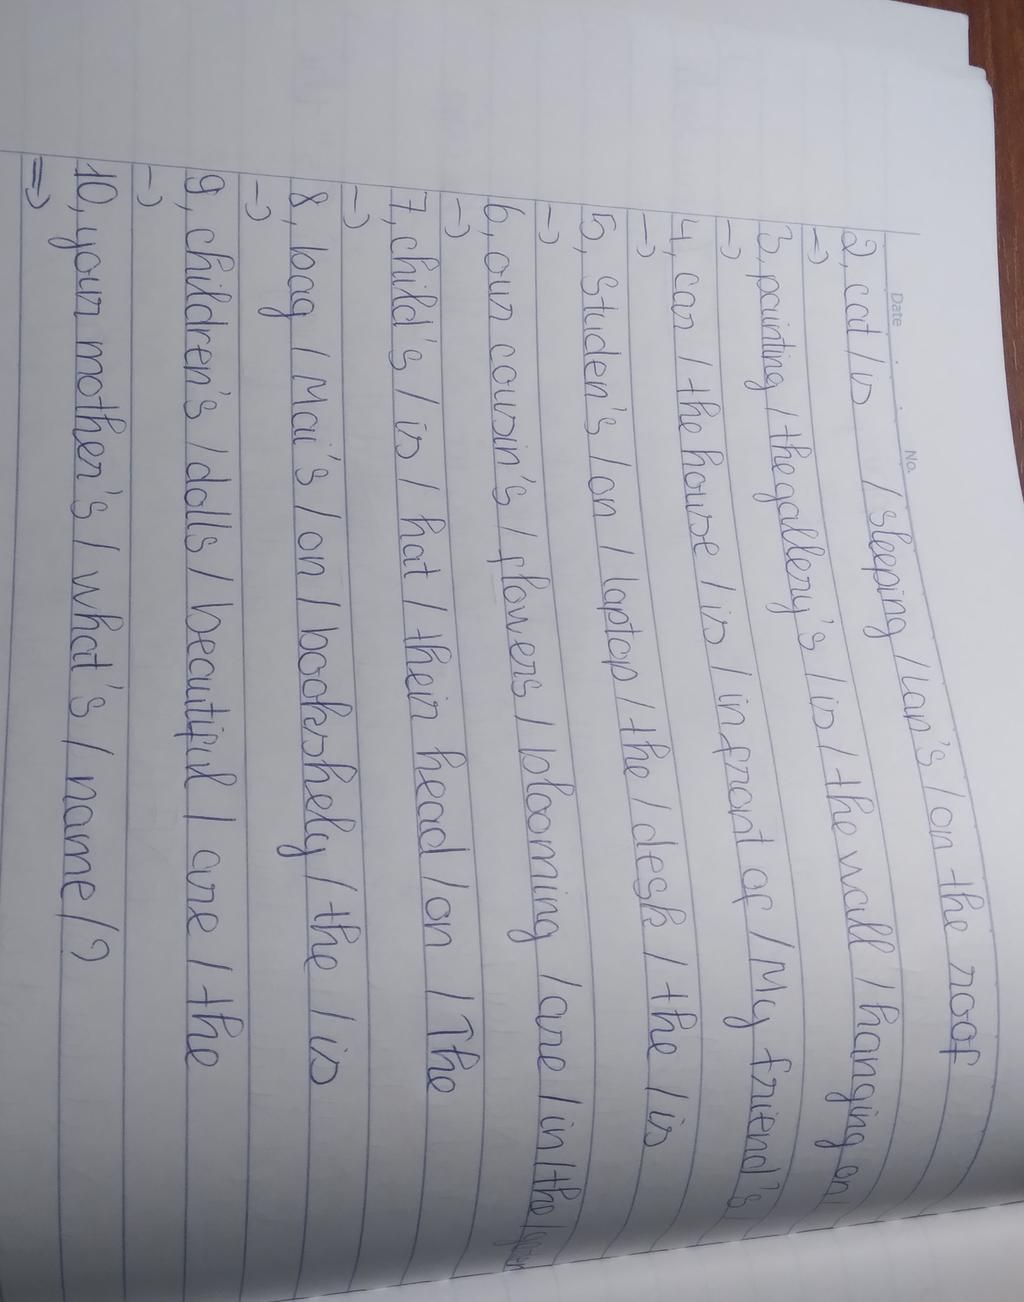 Date No.
2, cat / is / sleeping / Lan's / on the roof
→
3, painting / the gallery's / is / the wall / hanging on
→
4, car / the house / is / in front of / My friend's
→
5, Studen's / on / laptop / the / desk / the / is
→
6, our cousin's / flowers / blooming / are / in / the /
→
7, child's / is / hat / their head / on / The
→
8, bag / Mai's / on / bookshely / the / is
→
9, children's / dolls / beautiful / are / the
→
10, your mother's / what's / name / ?
⇒